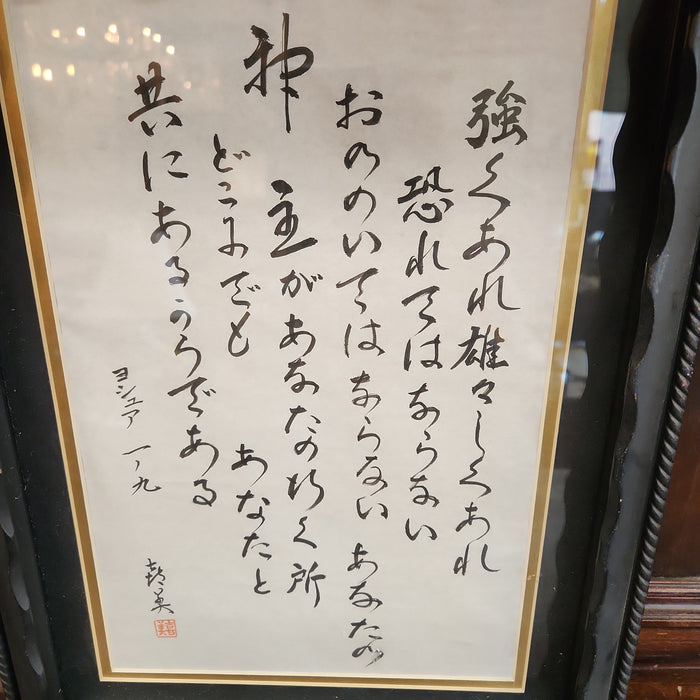 強くあれ雄々しくあれ
恐れてはならない
おののいてはならない あなたの
神
主があなたの行く所
どこにでも あなたと
共にあるからである
ヨシュア 一ノ九